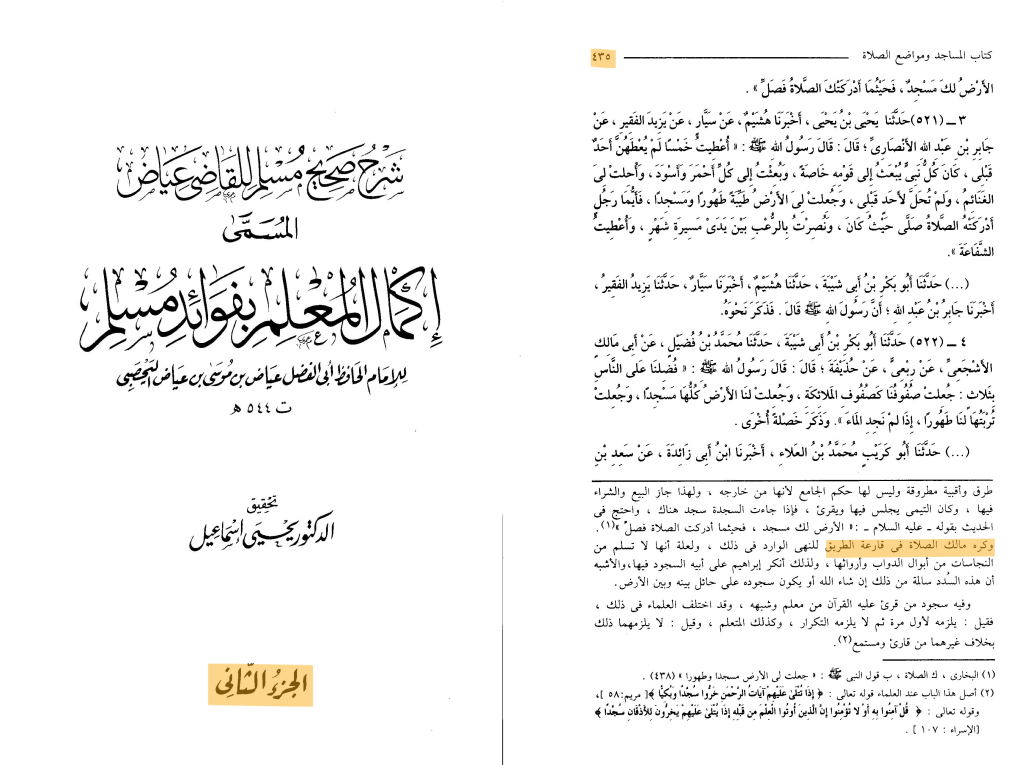 شرح صحيح مسلم للقاضى عياض
المسمى
إكمال المعلم بفوائد مسلم
للإمام الحافظ أبى الفضل عياض بن موسى بن عياض اليحصبى
ت ٥٤٤ هـ
تحقيق
الدكتور يحيى إسماعيل
الجزء الثانى
كتاب المساجد ومواضع الصلاة ـــــ ٤٣٥
الأَرْضُ لكَ مَسْجِدٌ ، فَحَيْثُمَا أدْرَكَتْكَ الصَّلاةُ فَصَلِّ » .
٣ ــ (٥٢١) حَدَّثَنَا يَحْيَى بْنُ يَحْيَى ، أخْبَرَنَا هُشَيْمٌ ، عَنْ سَيَّارٍ ، عَنْ يَزِيدَ الفَقِيرِ ، عَنْ
جَابِرِ بْنِ عَبْدِ الله الأنْصَارِىِّ ؛ قَالَ : قَالَ رَسُولُ الله ﷺ : « أُعْطِيتُ خَمْسًا لَمْ يُعْطَهُنَّ أحَدٌ
قَبْلِى ، كَانَ كُلُّ نَبِىٍّ يُبْعَثُ إلى قَوْمِهِ خَاصةً ، وَبُعثْتُ إلى كُلِّ أحْمَرَ وَأسْوَدَ ، وَأُحلتْ لِىَ
الغَنَائمُ ، وَلمْ تُحَلَّ لأحَدٍ قَبْلِى ، وَجُعلتْ لِىَ الأرْضُ طَيِّبَةً طَهُورًا وَمَسْجِدًا ، فَأيُّمَا رَجُلٍ
أدْرَكَتْهُ الصَّلاةُ صَلَّى حَيْثُ كَانَ ، وَنُصِرْتُ بِالرُّعْبِ بَيْنَ يَدَىْ مَسِيرَةِ شَهْرٍ ، وَأُعْطِيتُ
الشَّفَاعَةَ ».
(...) حَدَّثَنَا أبُو بَكْرِ بْنُ أبِى شَيْبَةَ ، حَدَّثَنَا هُشَيْمٌ ، أخْبَرَنَا سَيَّارٌ ، حَدَّثَنَا يَزِيدُ الفَقِيرُ ،
أخْبَرَنَا جَابِرُ بْنُ عَبْدِ الله ؛ أنَّ رَسُولَ الله ﷺ قَالَ . فَذَكَرَ نَحْوَهُ.
٤ ــ (٥٢٢) حَدَّثَنَا أبُو بَكْرِ بْنُ أبِى شَيْبَةَ ، حَدَّثَنَا مُحَمَّدُ بْنُ فُضَيْلٍ ، عَنْ أبِى مَالكٍ
الأشْجَعِىِّ ، عَنْ رِبْعِىٍّ ، عَنْ حُذَيْفَةَ ؛ قَالَ : قَالَ رَسُولُ الله ﷺ : « فُضِّلنَا عَلى النَّاسِ
بِثَلاثٍ : جُعلتْ صُفُوفُنَا كَصُفُوفِ المَلائكَةِ ، وَجُعلتْ لنَا الأرْضُ كُلُّهَا مَسْجِدًا ، وَجُعلتْ
تُرْبَتُهَا لنَا طَهُورًا ، إذَا لمْ نَجِدِ المَاءَ ». وَذَكَرَ خَصْلةً أُخْرَى .
(...) حَدَّثَنَا أبُو كَرَيْبٍ مُحَمَّدُ بْنُ العَلاءِ ، أخْبَرَنَا ابْنُ أبِى زَائِدَةَ ، عَنْ سَعِدِ بْنِ
طرق وأقبية مطروقة وليس لها حكم الجامع لأنها من خارجه ، ولهذا جاز البيع والشراء
فيها ، وكان التيمى يجلس فيها ويقرئ ، فإذا جاءت السجدة سجد هناك ، واحتج فى
الحديث بقوله ـ عليه السلام ـ :« الأرض لك مسجد ، فحيثما أدركت الصلاة فصلِّ »(١).
وكره مالك الصلاة فى قارعة الطريق للنهى الوارد فى ذلك ، ولعلة أنها لا تسلم من
النجاسات من أبوال الدواب وأرواثها ، ولذلك أنكر إبراهيم على أبيه السجود فيها،والأشبه
أن هذه السُدد سالمة من ذلك إن شاء الله أو يكون سجوده على حائل بينه وبين الأرض.
وفيه سجود من قرئ عليه القرآن من معلم وشبهه ، وقد اختلف العلماء فى ذلك ،
فقيل : يلزمه لأول مرة ثم لا يلزمه التكرار ، وكذلك المتعلم ، وقيل : لا يلزمهما ذلك
بخلاف غيرهما من قارئ ومستمع(٢).
(١) البخارى ، ك الصلاة ، ب قول النبى ﷺ : « جعلت لى الأرض مسجدا وطهورا » (٤٣٨) .
(٢) أصل هذا الباب عند العلماء قوله تعالى : ﴿ إِذَا تُتْلَىٰ عَلَيْهِمْ آيَاتُ الرَّحْمَنِ خَرُّوا سُجَّدًا وَبُكِيًّا ﴾[ مريم:٥٨ ]،
وقوله تعالى : ﴿ قُلْ آمِنُوا بِهِ أَوْ لا تُؤْمِنُوا إِنَّ الَّذِينَ أُوتُوا الْعِلْمَ مِن قَبْلِهِ إِذَا يُتْلَىٰ عَلَيْهِمْ يَخِرُّونَ لِلأَذْقَانِ سُجَّدًا ﴾
[الإسراء : ١٠٧ ] .